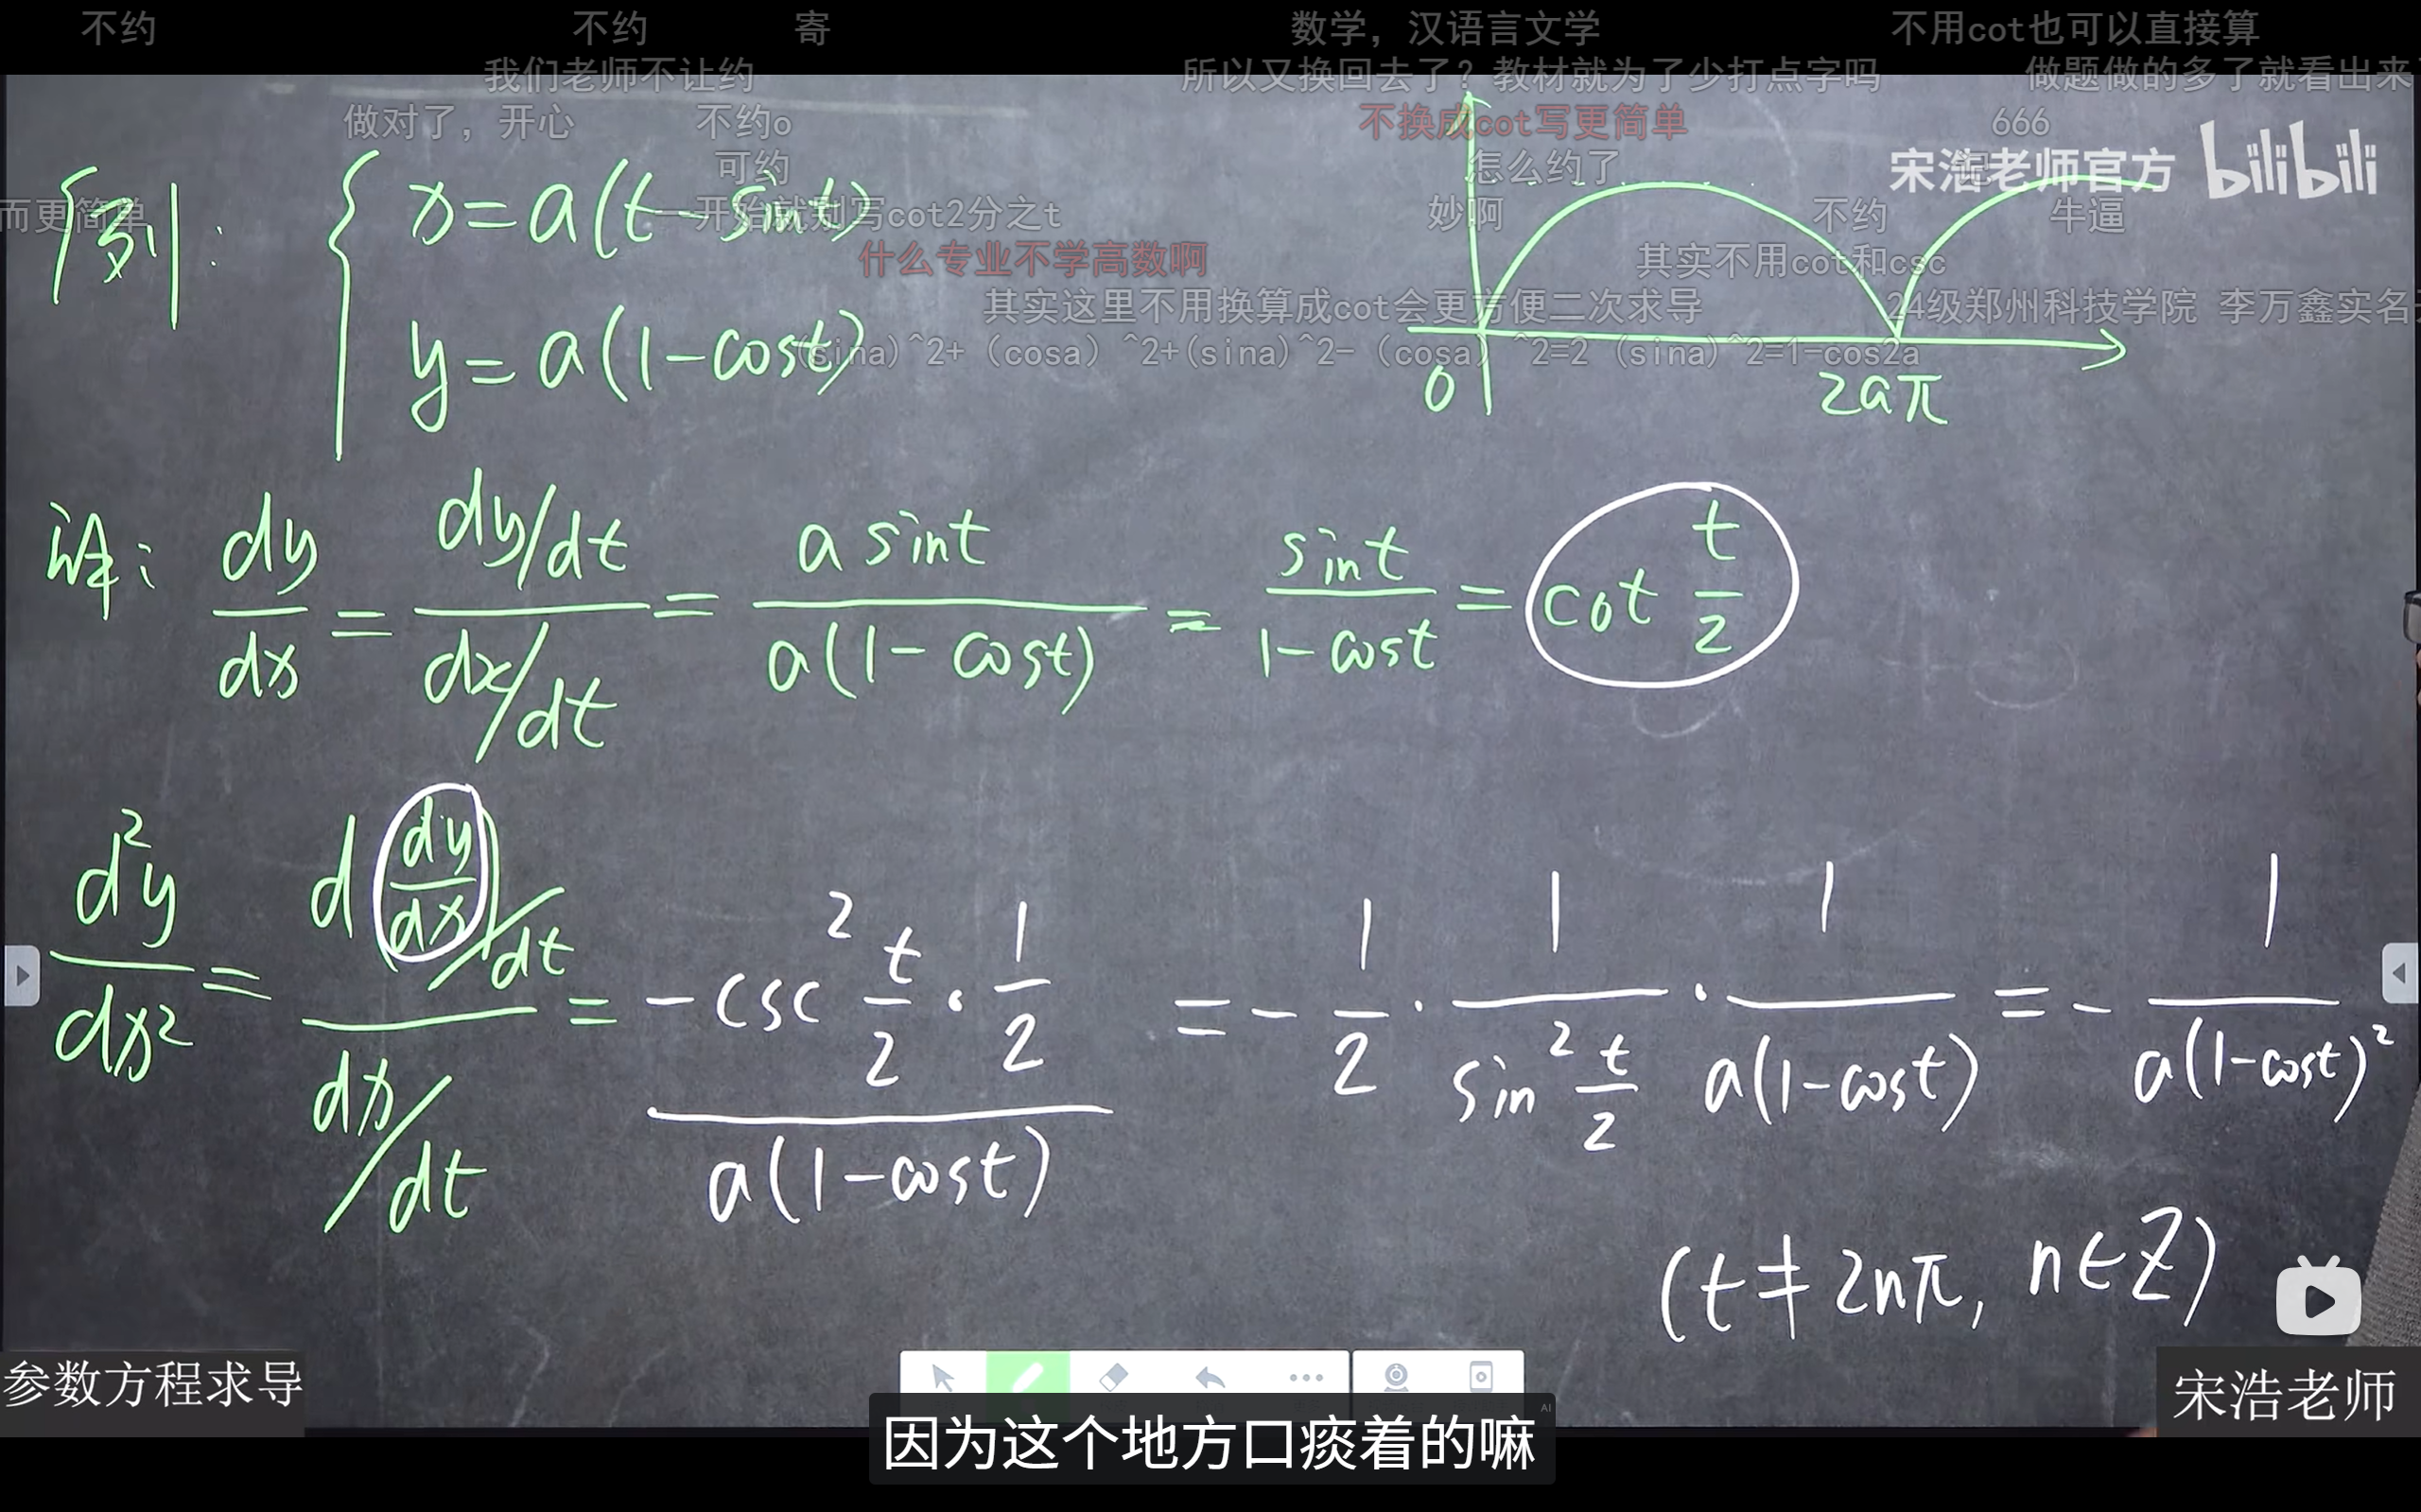 不约 不约 寄 数学，汉语言文学 不用cot也可以直接算
我们老师不让约 所以又换回去了？教材就为了少打点字吗 做题做的多了就看出来
做对了，开心 不约o 不换成cot写更简单 666
可约 怎么约了 宋浩老师官方 bilibili
而更简单 开始就别写cot2分之t 妙啊 不约 牛逼
什么专业不学高数啊 其实不用cot和csc
其实这里不用换算成cot会更方便二次求导 24级郑州科技学院 李万鑫实名
(sina)^2+（cosa）^2+(sina)^2-（cosa）^2=2（sina)^2=1-cos2a
例: { x=a(t-sint)
y=a(1-cost)
0 2aπ
解: dy/dx = (dy/dt)/(dx/dt) = a sint/a(1-cost) = sint/1-cost = cot t/2
d²y/dx² = (d(dy/dx)/dt)/(dx/dt) = -csc² t/2 · 1/2 / a(1-cost) = - 1/2 · 1/sin² t/2 · 1/a(1-cost) = - 1/a(1-cost)²
(t≠2nπ, n∈Z)
参数方程求导
宋浩老师
AI
因为这个地方口痰着的嘛